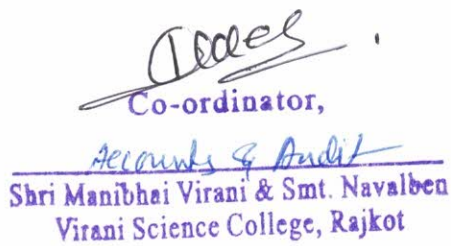 Co-ordinator,
Accounts & Audit
Shri Manibhai Virani & Smt. Navalben
Virani Science College, Rajkot